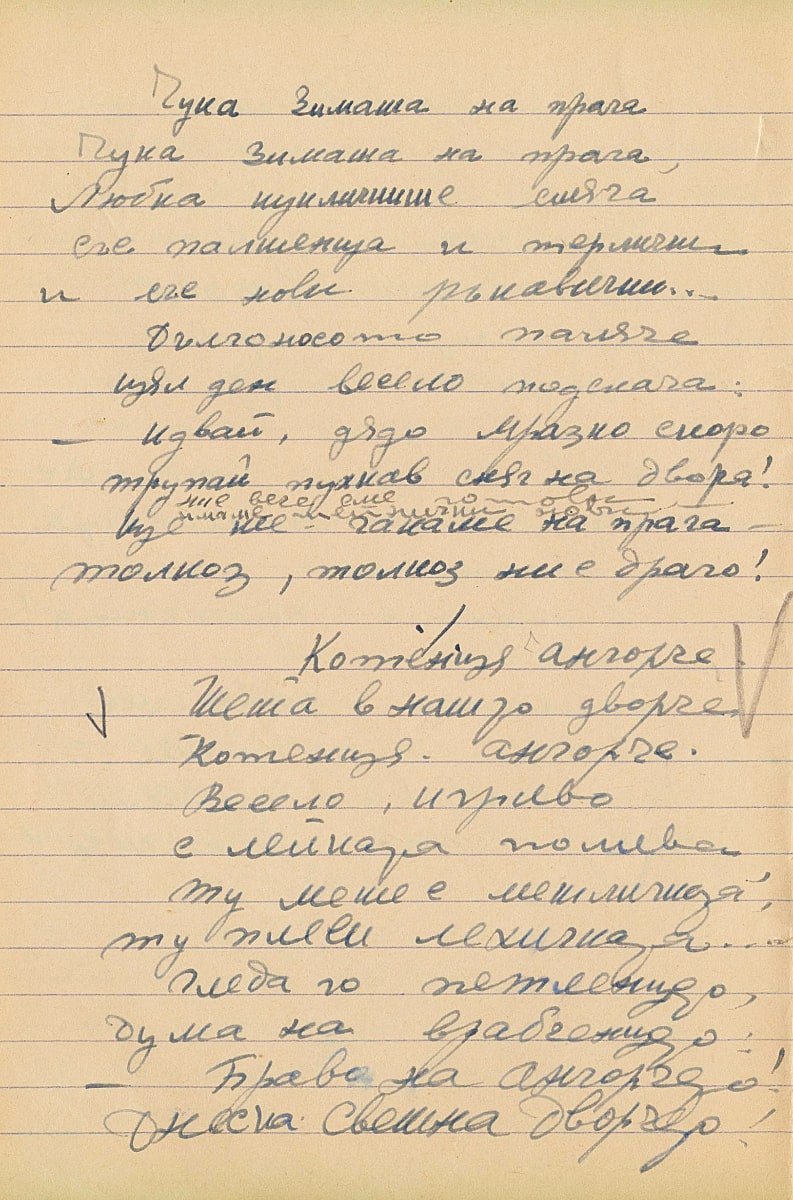 Чука Зимата на прага
Чука зимата на прага,
Любка кукличките стяга
със палтенца и терлички
и със нови ръкавички...
Дългоносото палячо
цял ден весело подскача:
— Идвай, дядо Мразко скоро
трупай пухкав сняг на двора!
ние вече сме готови
имаме шейнички нови
Ще те чакаме на прага —
толкоз, толкоз ни е драго!
Котенце ангорче.
Шета в нашто дворче
Котенце ангорче.
Весело, игриво
с лейката полива
ту мете с метличката,
ту плеви лехичката...
Гледа го петленцето,
дума на врабченцето:
— Браво на ангорчето!
Днеска светна дворчето!